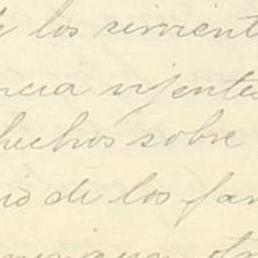 de los sirvient
ncia vijentes
hechos sobre
io de los fa